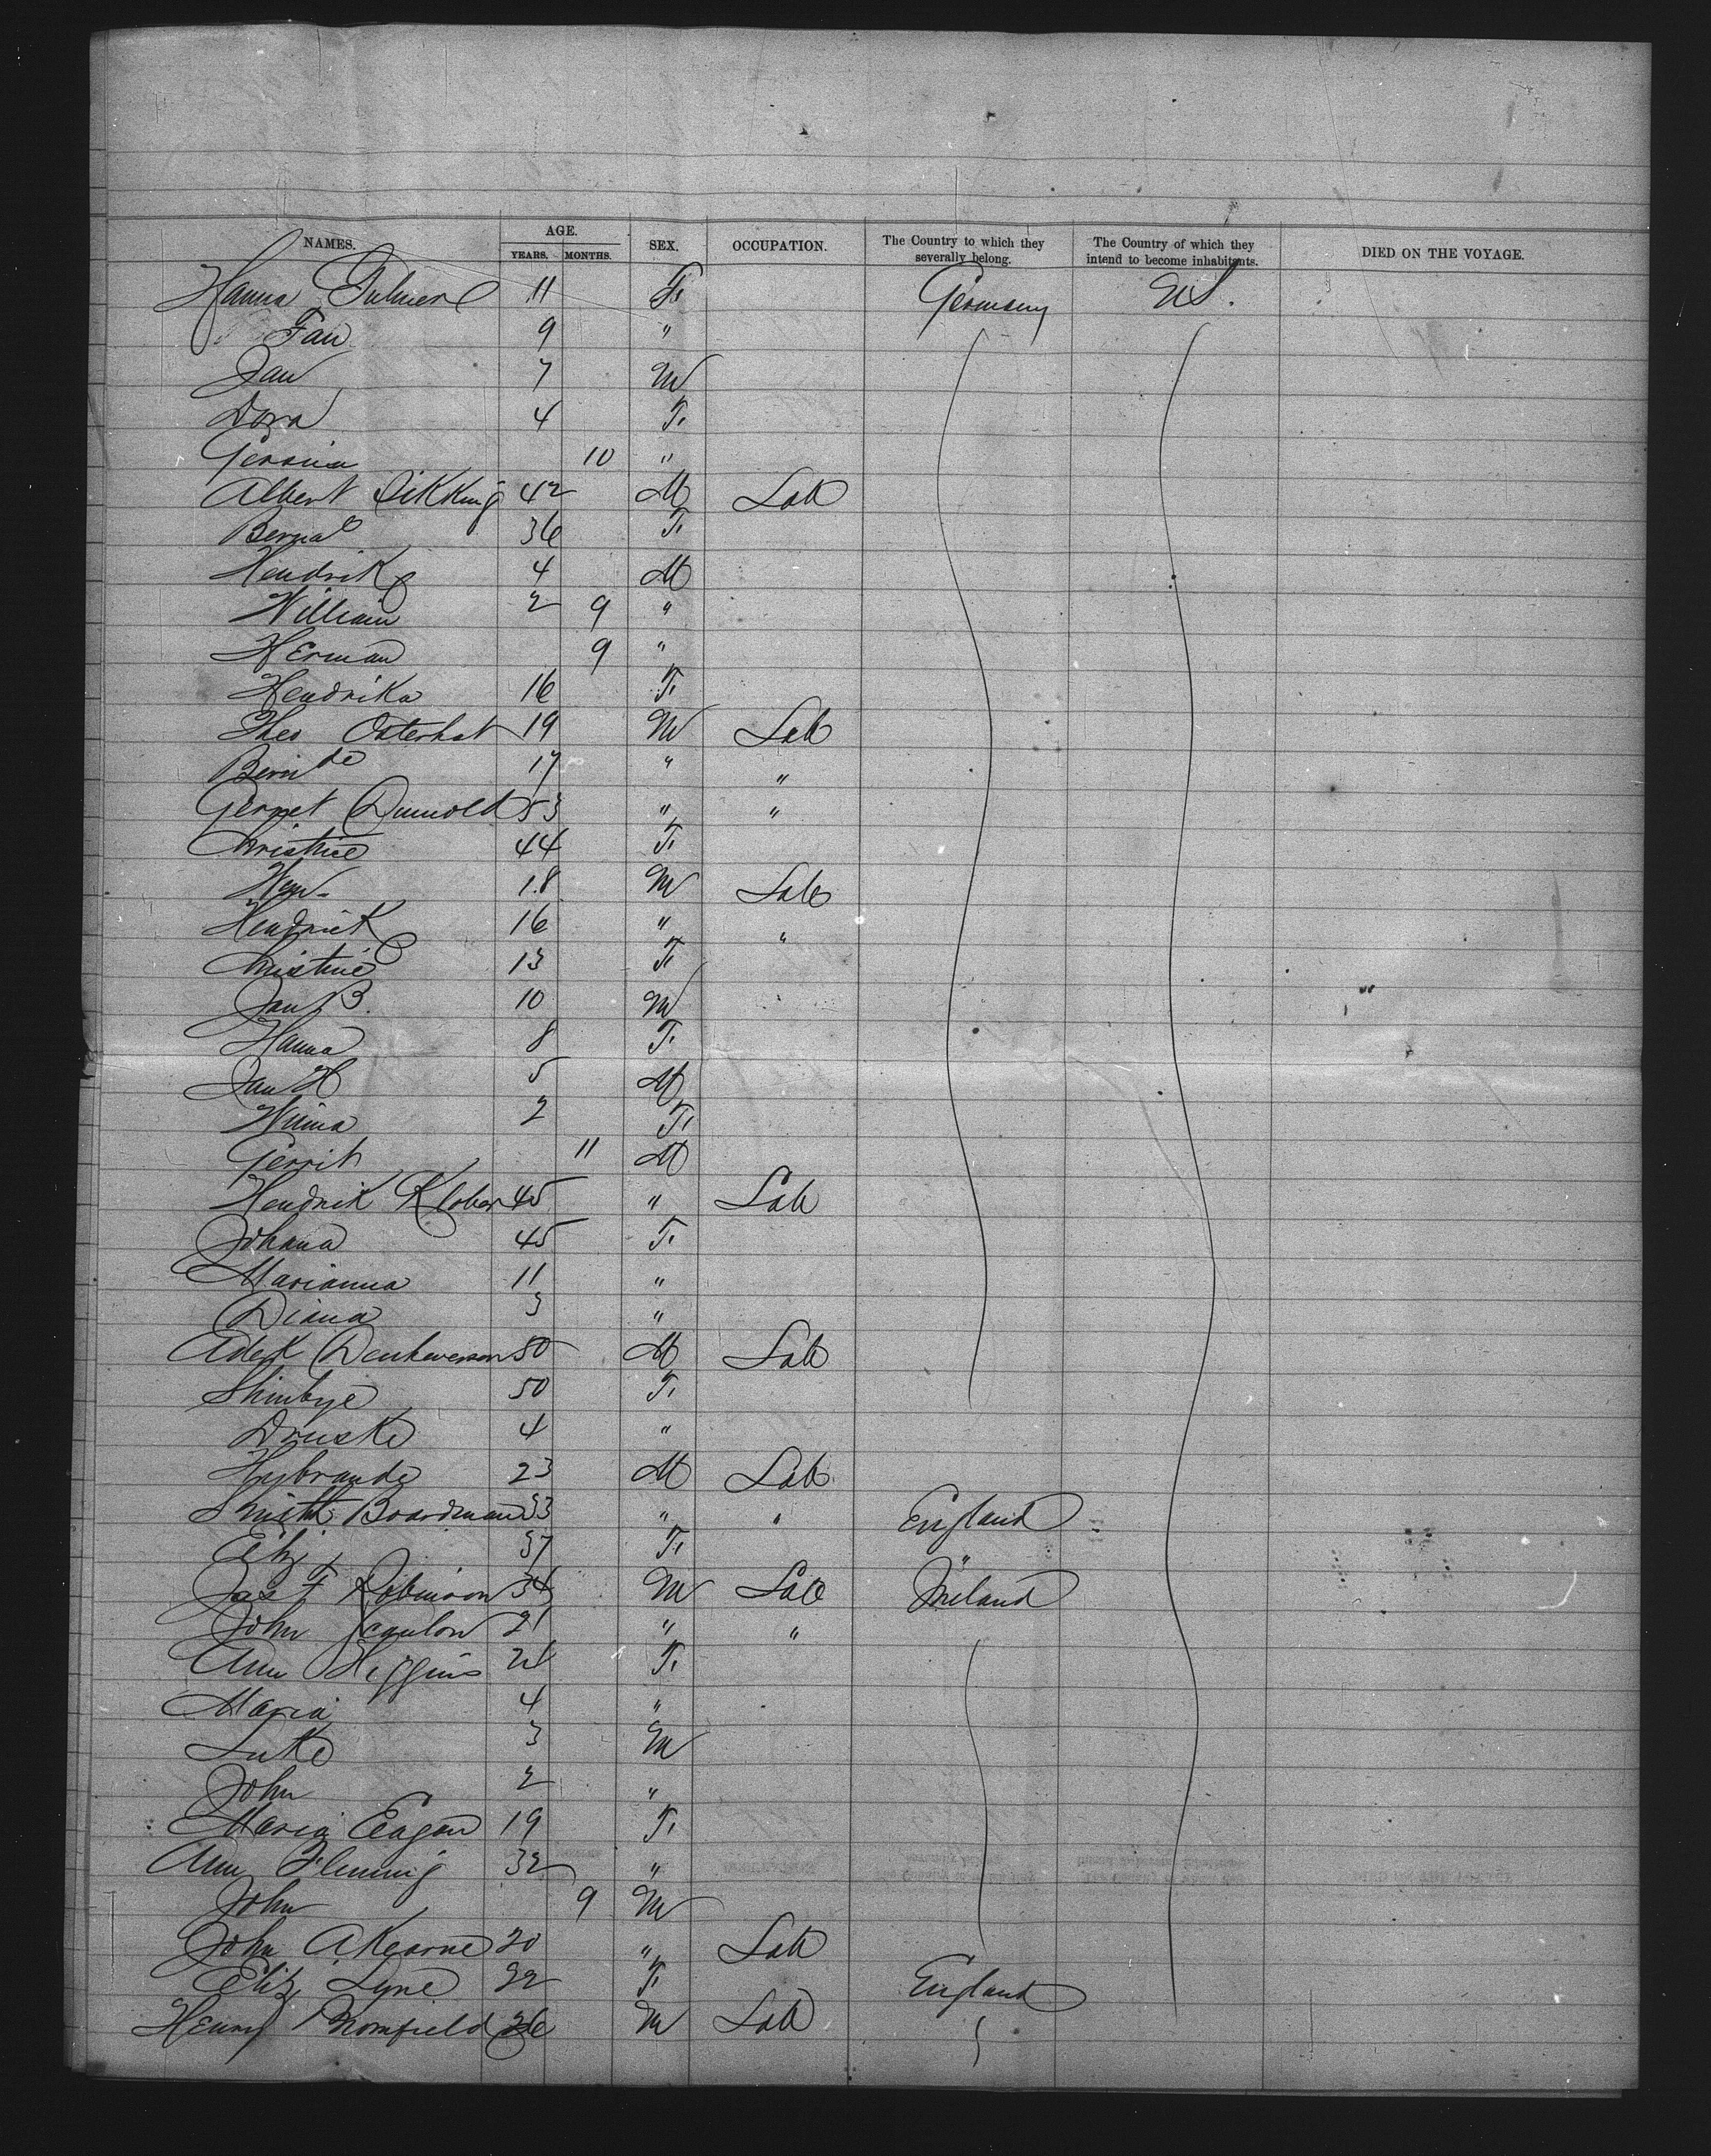 NAMES. AGE. YEARS. MONTHS. SEX. OCCUPATION. The Country to which they severally belong. The Country of which they intend to become inhabitants. DIED ON THE VOYAGE.
Hanna 11 F. Germany U.S.
Fan 9 "
Jan 7 M
Dora 4 F.
10 "
Albert 42 M Lab
36 F.
Hendrik 4 M
William 2 9 "
Herman 9 "
Hendrika 16 F.
Theo Osterhat 19 M Lab
Bern do 17 " "
Gerret 53 " "
Christine 44 F.
18 M Lab
Hendrick 16 " "
Christine 13 F.
Jan B. 10 M
Hanna 8 F.
Jan H 5 M
2 F.
Gerrit 11 M
Hendrik Klober 45 " Lab
Johana 45 F.
Marianna 11 "
Diana 3 "
50 M Lab
50 F.
4 "
23 M Lab
Smith Boardman 33 " " England
Eliz 37 F. "
Jas F Robinson 34 M Lab Ireland
John Scanlon 21 " "
Ann Higgins 24 F.
Maria 4 "
Luke 3 M
John 2 "
Maria Eagan 19 F.
Ann Fleming 32 "
John 9 M
John AKearne 20 " Lab
Eliz Lyne 22 F. England
Henry 26 M Lab